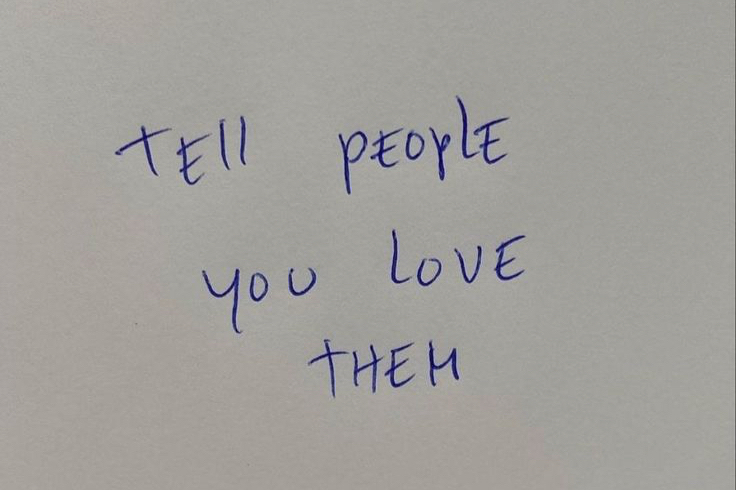 TEll pEOplE
YOU LOVE
THEM